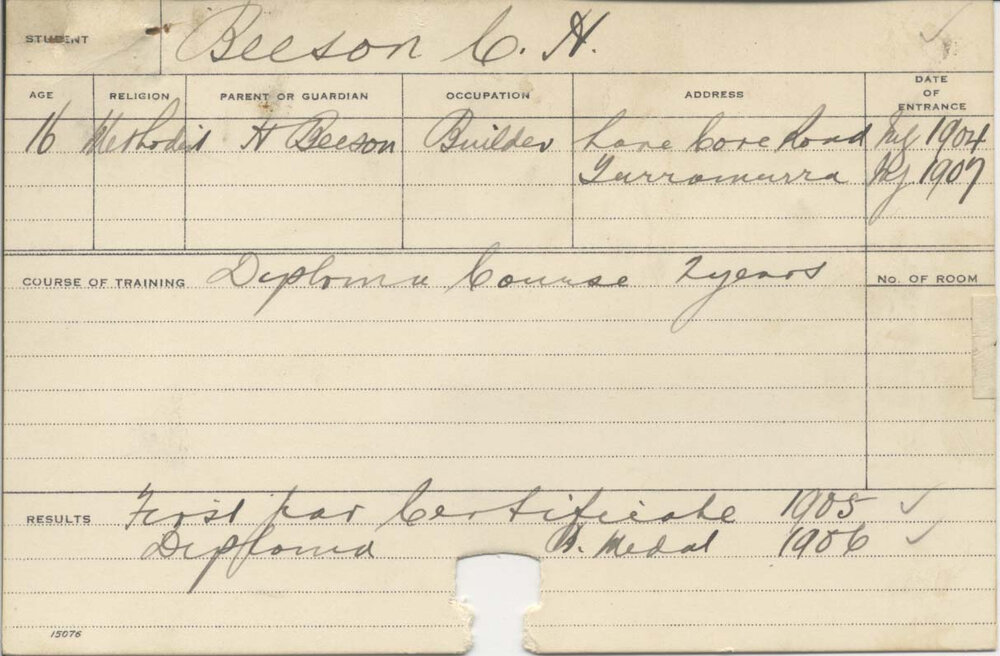 STUDENT Beeson C. H.
AGE RELIGION PARENT OR GUARDIAN OCCUPATION ADDRESS DATE OF ENTRANCE
16 Methodist H Beeson Builder Lane Cove Road 1904
Turramurra 1907
COURSE OF TRAINING Diploma Course 2 years No. OF ROOM
RESULTS First Year Certificate 1905
Diploma Medal 1906
15076